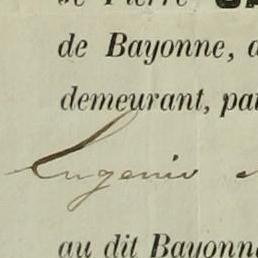 de Pierre
de Bayonne,
demeurant, pa
Eugenio
au dit Bayonn